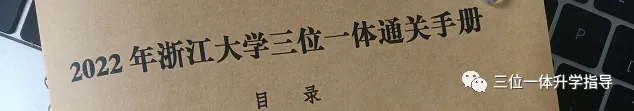 2022年浙江大学三位一体通关手册
目 录
三位一体升学指导